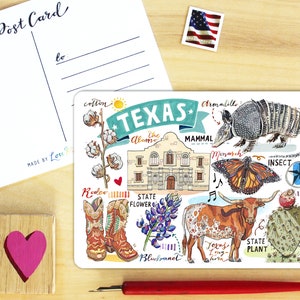 Post Card
to
MADE BY
cotton
TEXAS
the
Alamo
Armadillo
MAMMAL
Monarch
INSECT
Rodeo
STATE
FLOWER
Bluebonnet
Texas
longhorn
STATE
PLANT